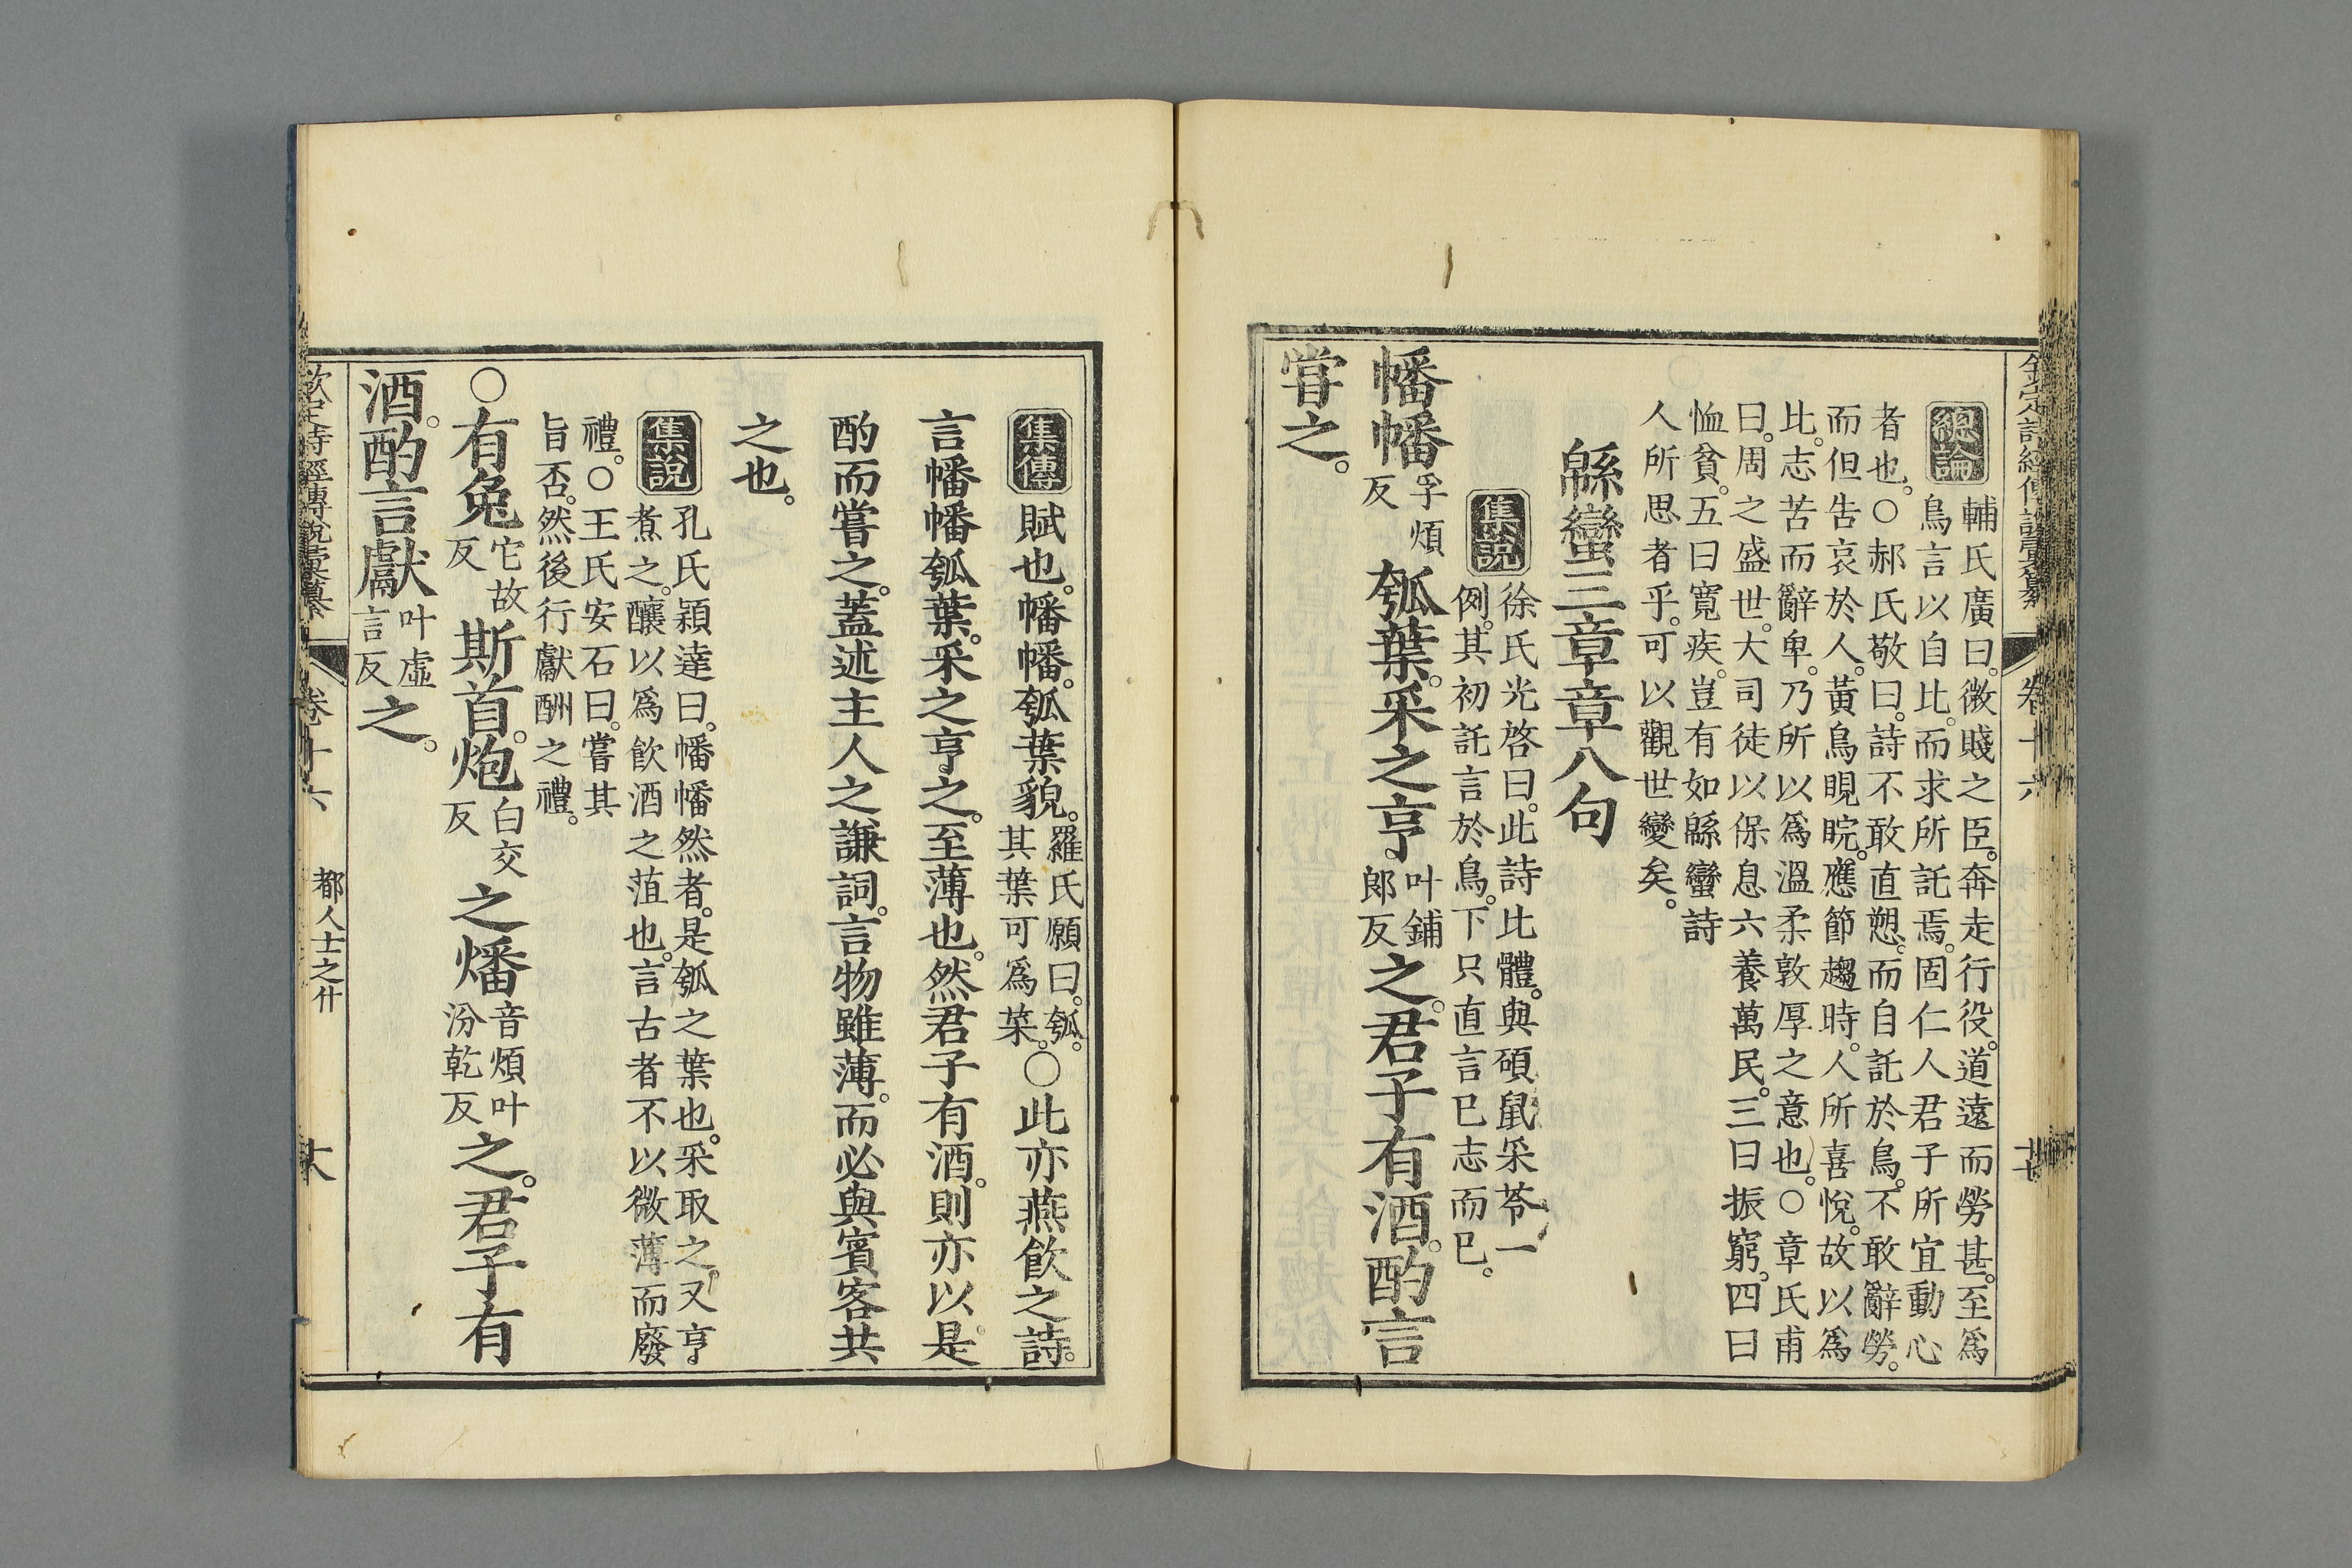 欽定詩經傳說彙纂 卷十六 十七
總論
輔氏廣曰。微賤之臣。奔走行役。道遠而勞甚。至爲
鳥言以自比。而求所託焉。固仁人君子所宜動心
者也。○郝氏敬曰。詩不敢直愬。而自託於鳥。不敢辭勞。
而但告哀於人。黃鳥睍睆。應節趨時。人所喜悅。故以爲
比。志苦而辭卑。乃所以爲溫柔敦厚之意也。○章氏甫
曰。周之盛世。大司徒以保息六養萬民。三曰振窮。四曰
恤貧。五曰寬疾。豈有如緜蠻詩
人所思者乎。可以觀世變矣。
緜蠻三章章八句
集說
徐氏光啓曰。此詩比體。與碩鼠采苓一
例。其初託言於鳥。下只直言已志而已。
幡幡孚煩反瓠葉。采之亨叶鋪郎反之。君子有酒。酌言
嘗之。
集傳賦也。幡幡。瓠葉貌。羅氏願曰。瓠。其葉可爲菜。○此亦燕飲之詩。
言幡幡瓠葉。采之亨之。至薄也。然君子有酒。則亦以是
酌而嘗之。蓋述主人之謙詞。言物雖薄。而必與賓客共
之也。
集說
孔氏穎達曰。幡幡然者。是瓠之葉也。采取之。又亨
煮之。釀以爲飲酒之菹也。言古者不以微薄而廢
禮。○王氏安石曰。嘗其
旨否。然後行獻酬之禮。
○有兔它故反斯首。炮白交反之燔音煩叶汾乾反之。君子有
酒。酌言獻叶虛言反之。
欽定詩經傳說彙纂 卷十六 都人士之什 十八